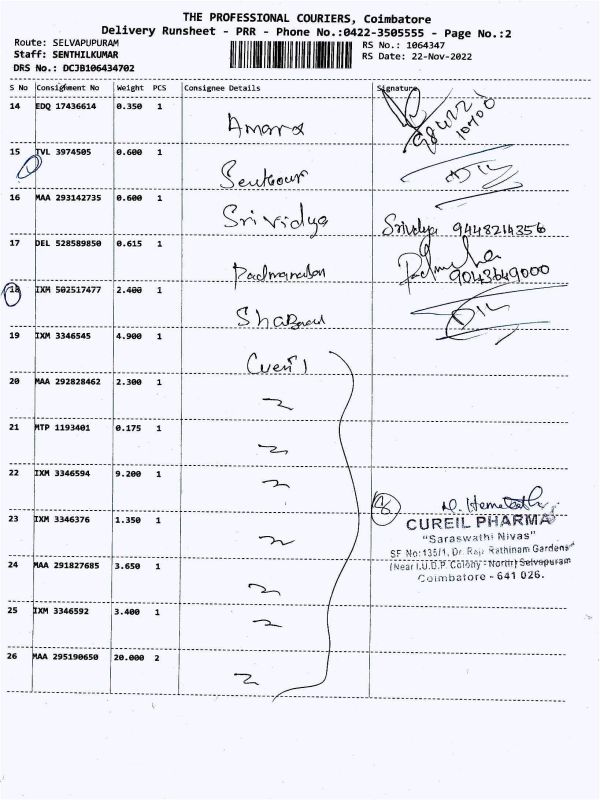 THE PROFESSIONAL COURIERS, Coimbatore
Delivery Runsheet - PRR - Phone No.:0422-3505555 - Page No.:2
Route: SELVAPUPURAM
Staff: SENTHILKUMAR
DRS No.: DCJB106434702
RS No.: 1064347
RS Date: 22-Nov-2022
S No Consignment No Weight PCS Consignee Details Signature
14 EDQ 17436614 0.350 1
98422
10700
15 TVL 3974505 0.600 1
16 MAA 293142735 0.600 1
Srividya Srividya 9448214356
17 DEL 528589850 0.615 1
9043649000
18 IXM 502517477 2.400 1
19 IXM 3346545 4.900 1
20 MAA 292828462 2.300 1
21 MTP 1193401 0.175 1
22 IXM 3346594 9.200 1
8
23 IXM 3346376 1.350 1
CUREIL PHARMA
"Saraswathi Nivas"
SF No:135/1, Dr. Raja Rathinam Gardens
(Near I.U.D.P. Colony - North) Selvapuram
Coimbatore - 641 026.
24 MAA 291827685 3.650 1
25 IXM 3346592 3.400 1
26 MAA 295190650 20.000 2